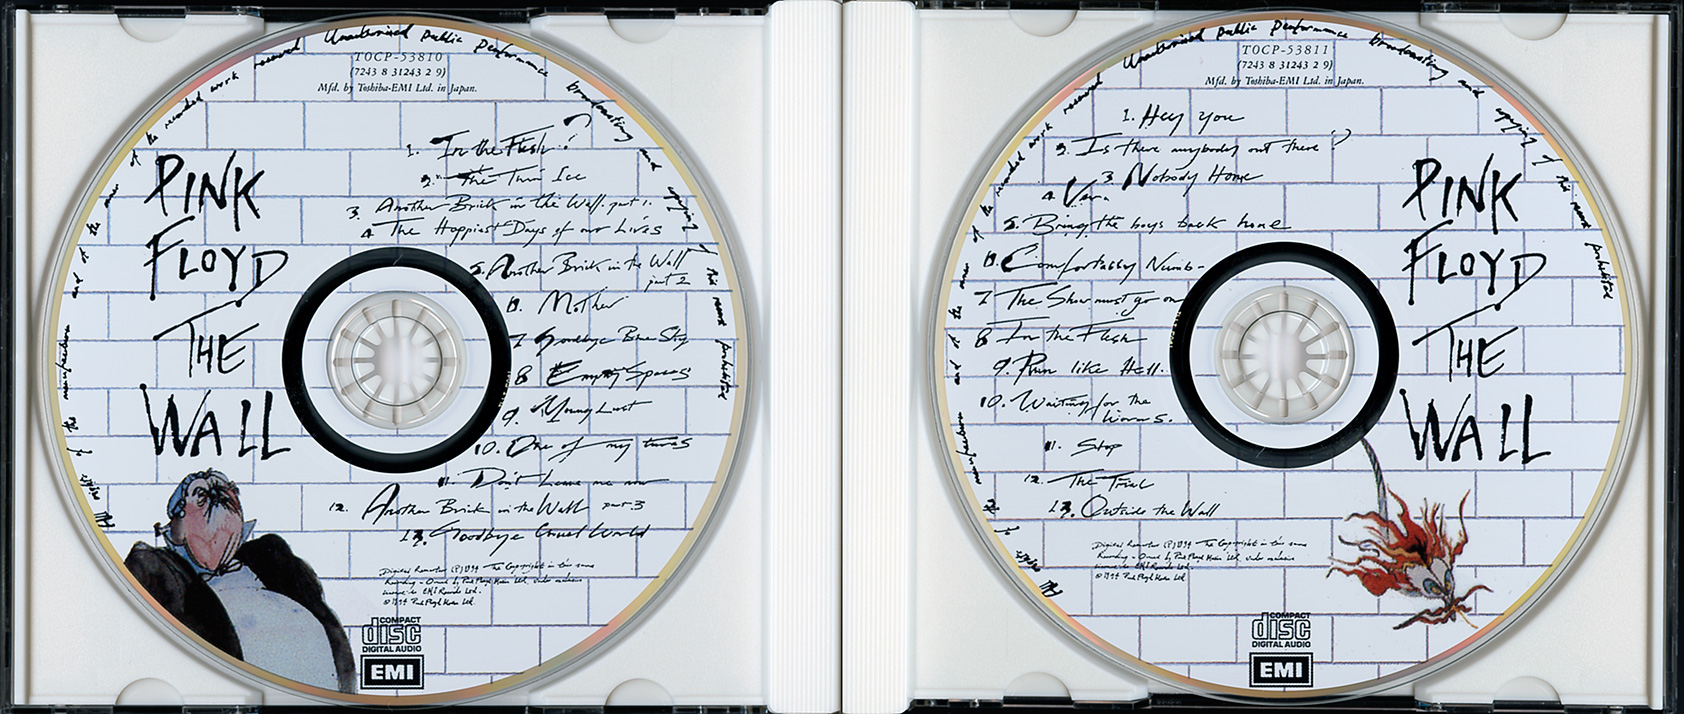 All rights of the manufacturer and of the owner of the recorded work reserved Unauthorised public performance broadcasting and copying of this record prohibited
TOCP-53810
(7243 8 31243 2 9)
Mfd. by Toshiba-EMI Ltd. in Japan.
PINK
FLOYD
THE
WALL
1. In the Flesh?
2. The Thin Ice
3. Another Brick in the Wall. part 1.
4. The Happiest Days of our Lives
5. Another Brick in the Wall
part 2
6. Mother
7 Goodbye Blue Sky
8 Empty Spaces
9. Young Lust
10. One of my turns
11. Don't Leave me now
12. Another Brick in the Wall part 3
13. Goodbye Cruel World
Digital Remaster (P) 1994 The Copyright in this sound
Recording is owned by Pink Floyd Music Ltd. under exclusive
licence to EMI Records Ltd.
© 1994 Pink Floyd Music Ltd.
COMPACT
disc
DIGITAL AUDIO
EMI
All rights of the manufacturer and of the owner of the recorded work reserved Unauthorised public performance broadcasting and copying of this record prohibited
TOCP-53811
(7243 8 31243 2 9)
Mfd. by Toshiba-EMI Ltd. in Japan.
1. Hey you
2. Is there anybody out there?
3 Nobody Home
4. Vera
5. Bring the boys back home
6. Comfortably Numb
7 The Show must go on
8 In the Flesh
9. Run like Hell.
10. Waiting for the
Worms.
11. Stop
12. The Trial
13. Outside the Wall
PINK
FLOYD
THE
WALL
Digital Remaster (P) 1994 The Copyright in this sound
Recording is owned by Pink Floyd Music Ltd. under exclusive
licence to EMI Records Ltd.
© 1994 Pink Floyd Music Ltd.
COMPACT
disc
DIGITAL AUDIO
EMI